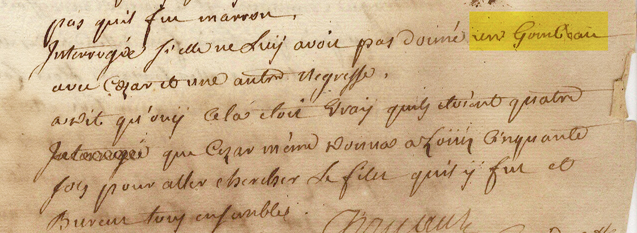 pas quil fut marron.
Interrogée si elle ne luy avoit pas donné un Gombeau
avec Cezar et une autre negresse.
a dit qu'ouy cela etoit vray quils etoient quatre
Interrogé que Cezar même donna a Louis Cinquante
sols pour aller chercher le filet quil y fut et
Burent tous ensembles.